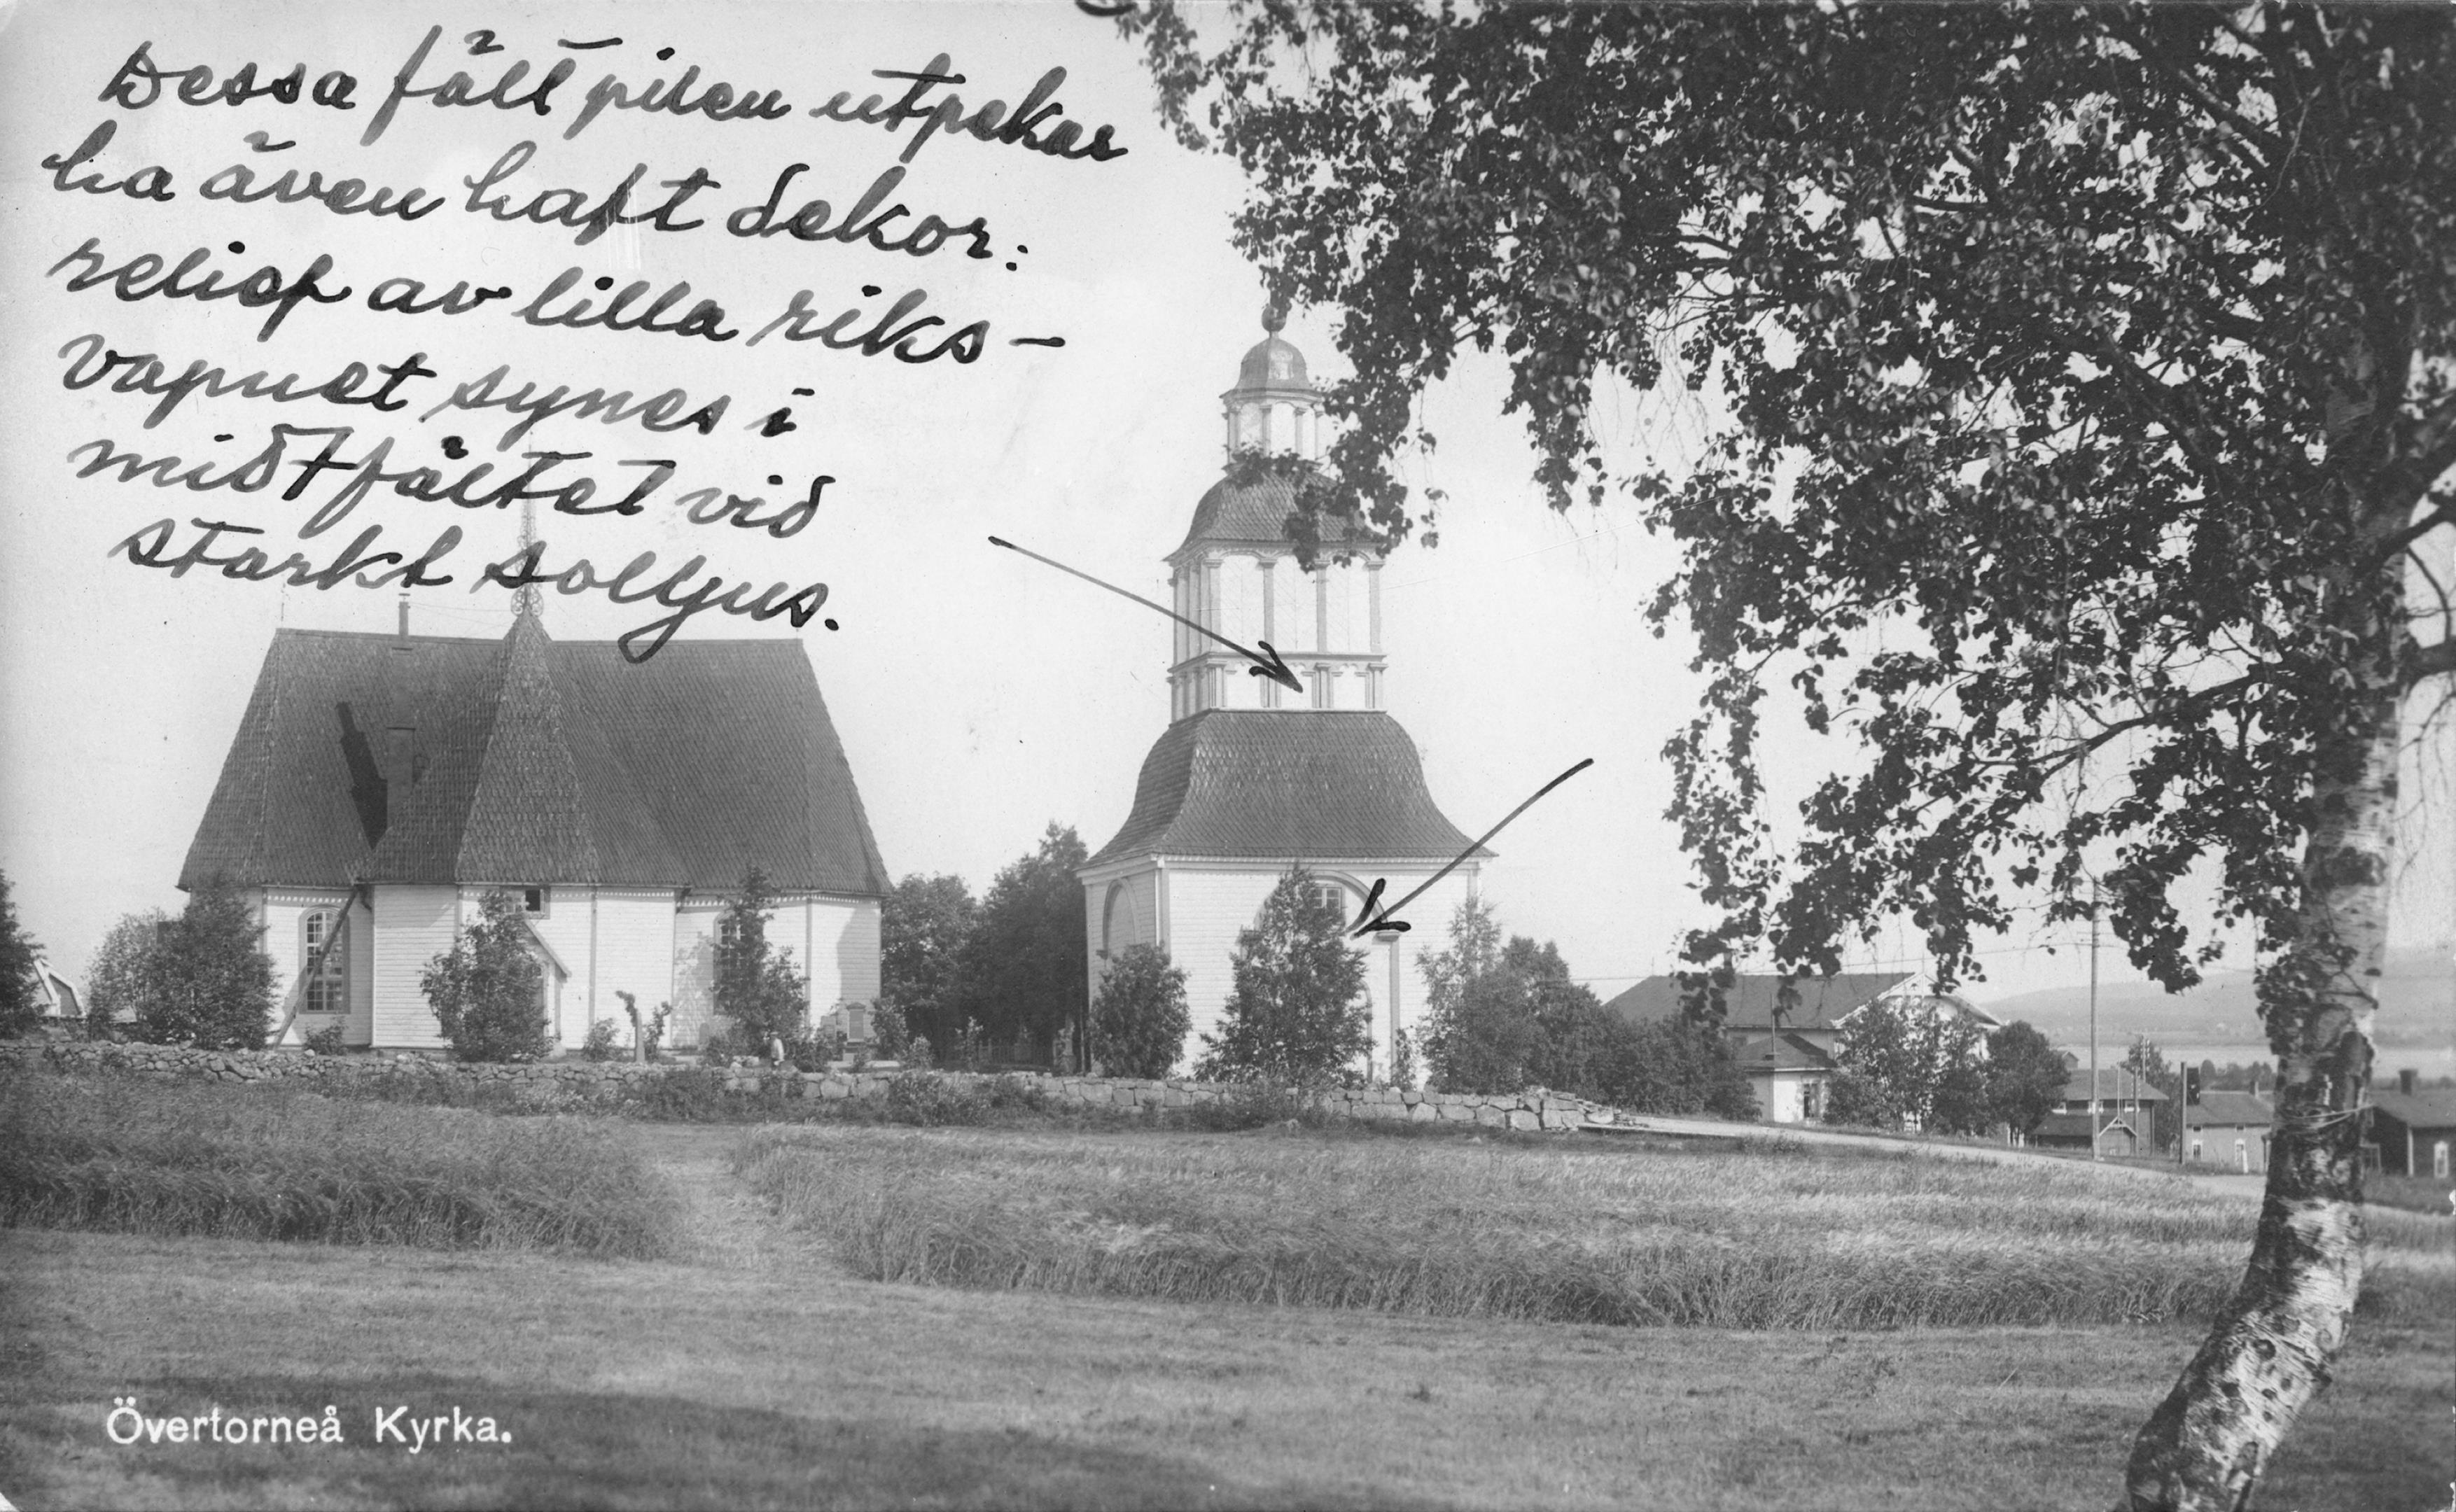 Dessa fält pilen utpekar
ha även haft dekor:
relief av lilla riks-
vapnet synes i
midtfältet vid
starkt solljus.
Övertorneå Kyrka.